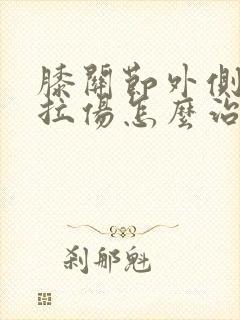 膝關節外側
拉傷怎麼治
刹那魁